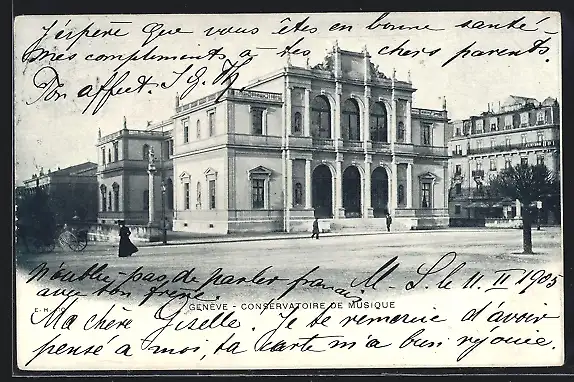 J'éspère que vous êtes en bonne santé.
Mes complements à tes chers parents.
Ton affect.
N'euble-pas de parler français
avec ton frère.
M-S. le 11. II. 1905
E. H.
GENÈVE - CONSERVATOIRE DE MUSIQUE
Ma chère Giselle. Je te remercie d'avoir
pensé à moi, ta carte m'a bien réjouie.